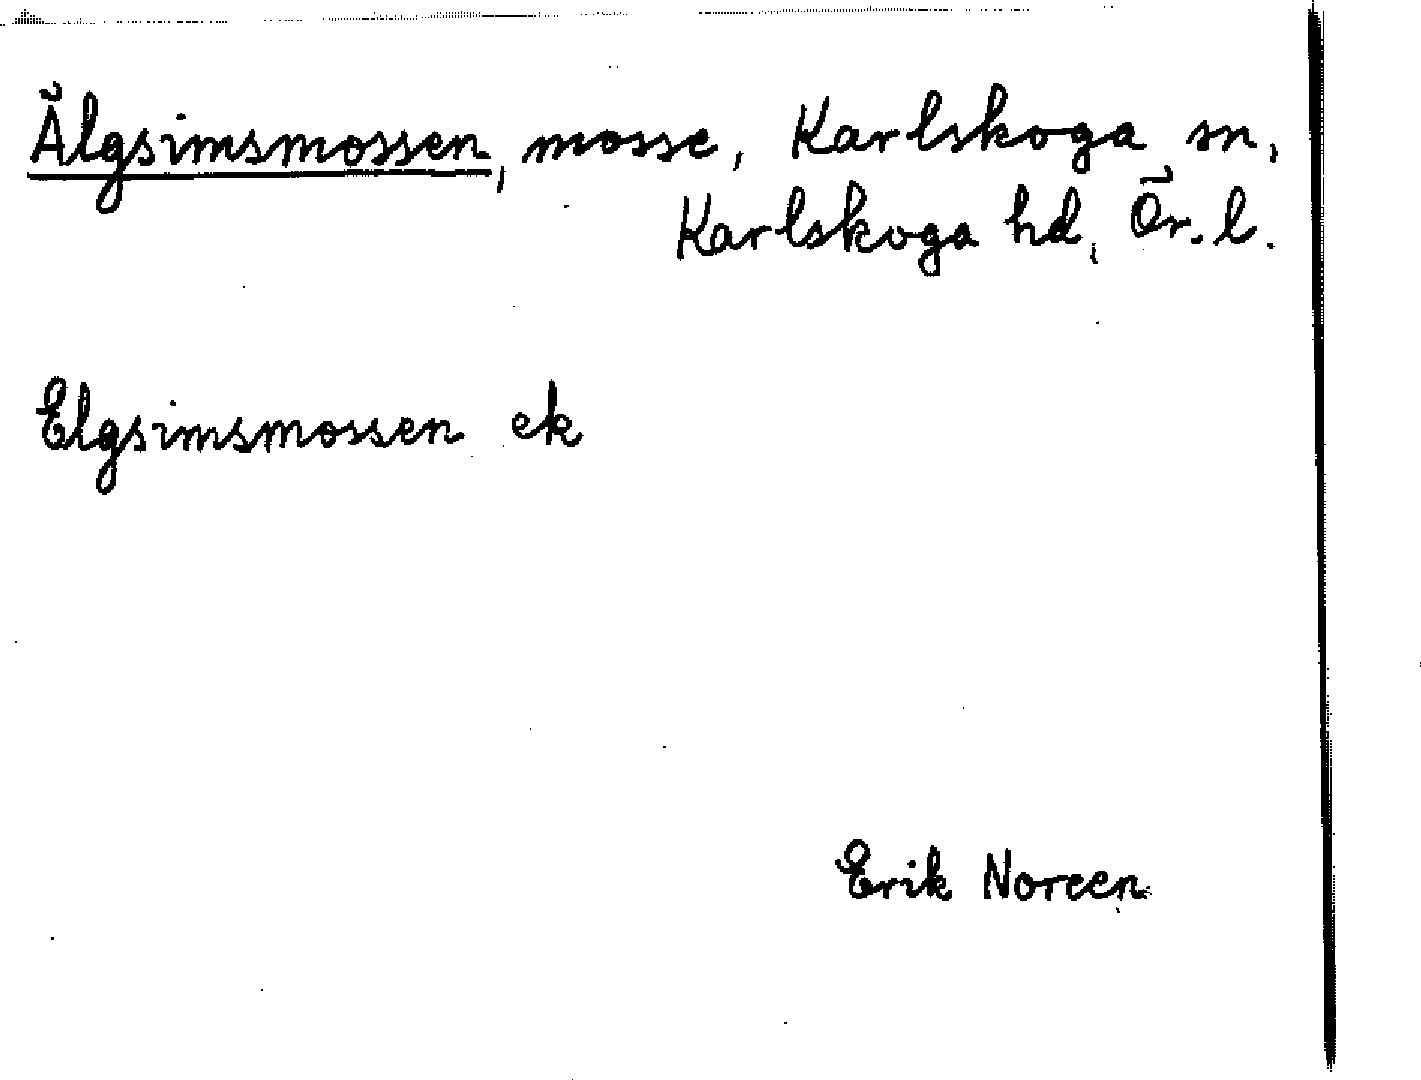 Älgsimsmossen, mosse, Karlskoga sn,
Karlskoga hd, Ör. l.
Elgsimsmossen ek
Erik Noreen